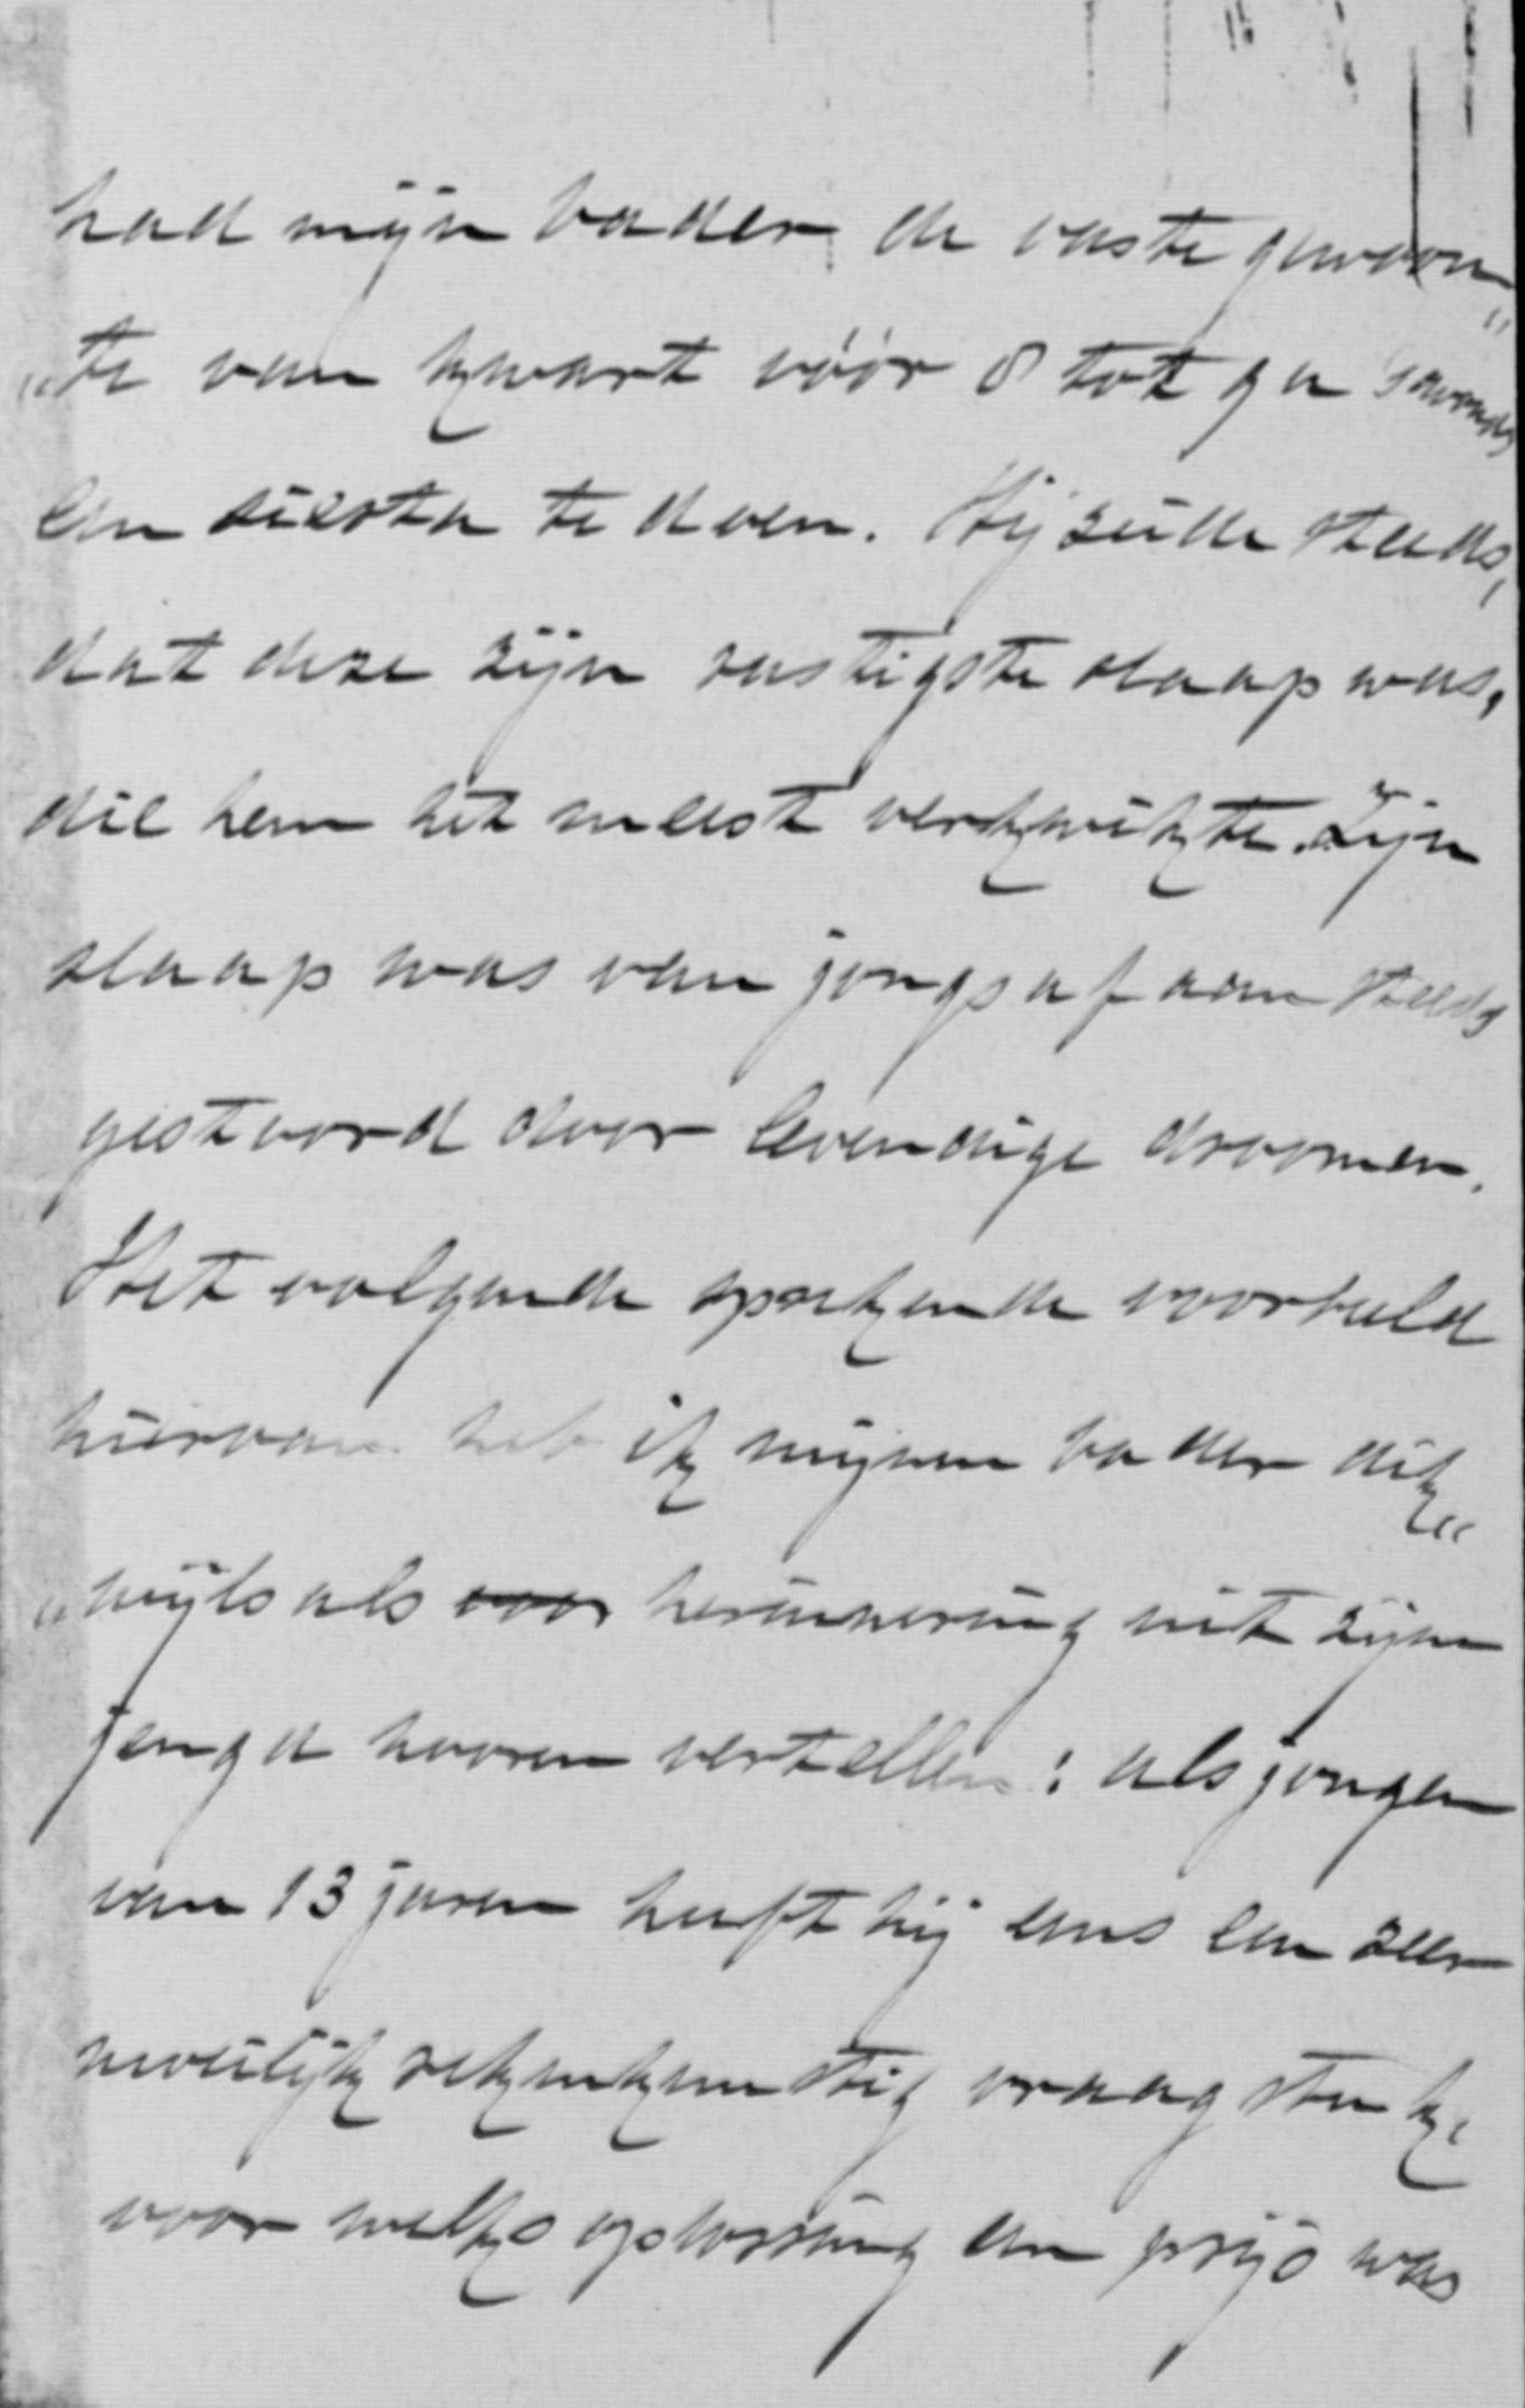 had mijn vader de vaste gewoon„
„te van kwart vóór 8 tot 9 u 's avonds
een siësta te doen. Hij zeide steeds,
dat deze zijn rustigste slaap was,
die hem het meest verkwikte. Zijn
slaap was van jongs af aan steeds
gestoord door levendige droomen.
Het volgende sprekende voorbeeld
hiervan heb ik mijnen vader dik„
„wijls als voor herinnering uit zijne
jeugd hooren vertellen: als jongen
van 13 jaren heeft hij eens een zeer
moeilijk rekenkunstig vraagstuk,
voor welks oplossing een prijs was